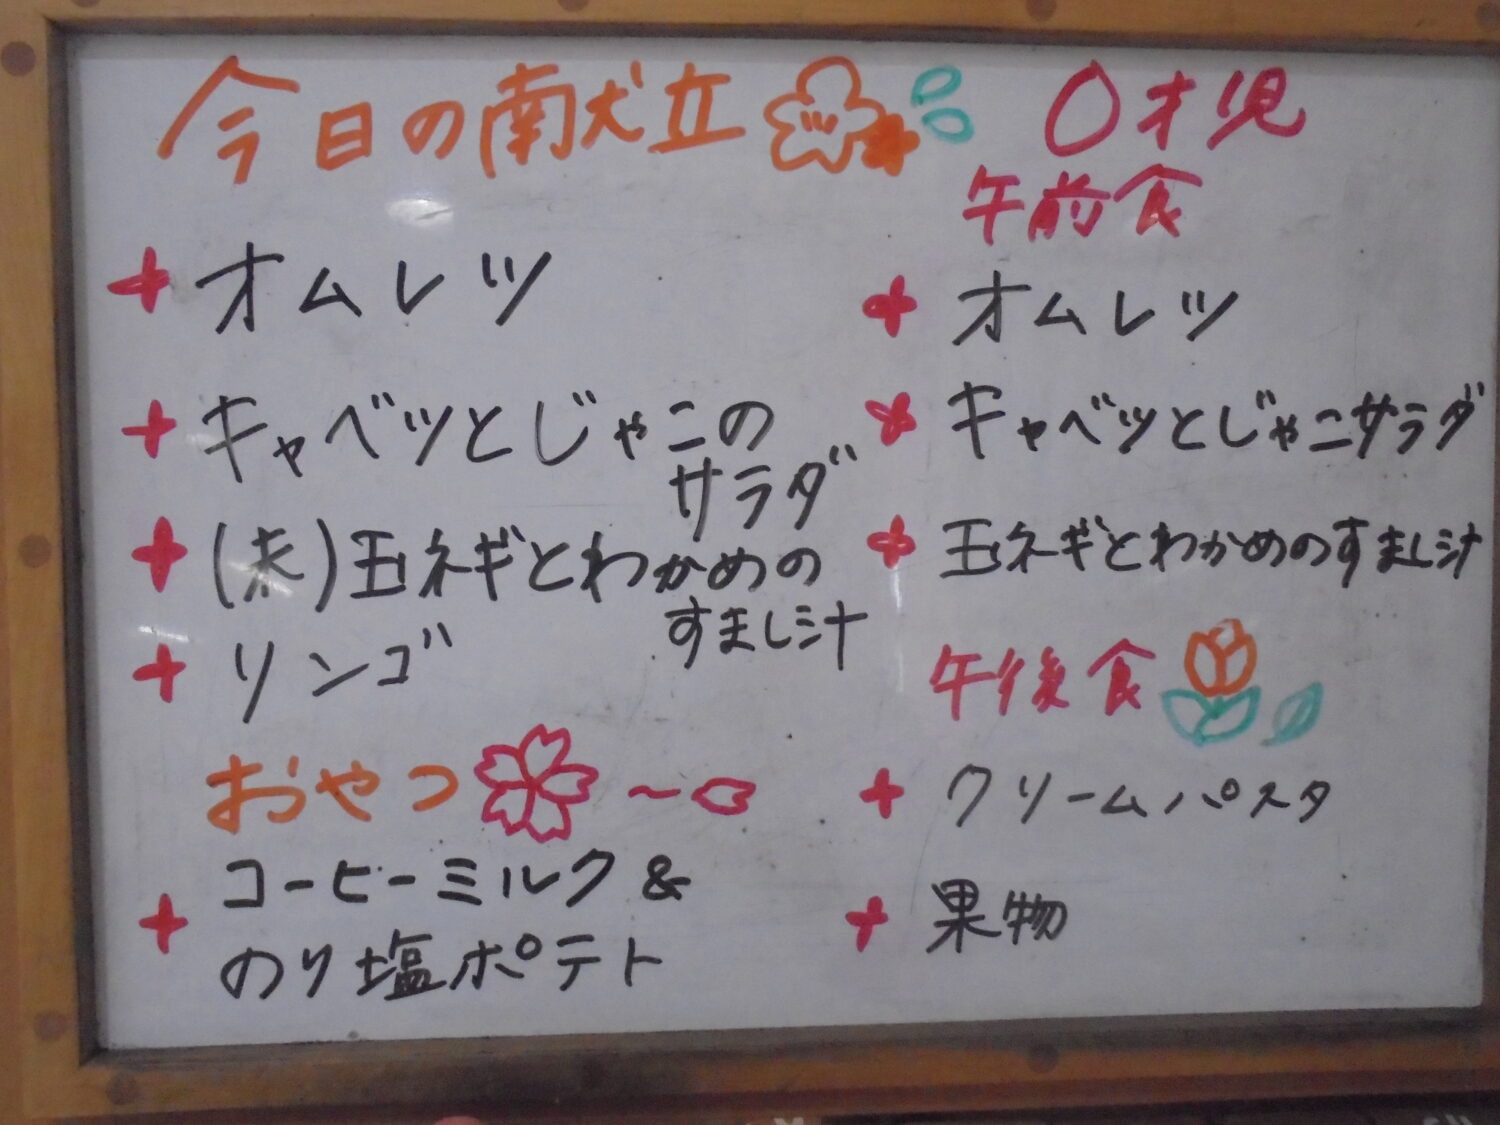 今日の献立
オムレツ
キャベツとじゃこの
サラダ
(未)玉ネギとわかめの
すまし汁
リンゴ
おやつ
コーヒーミルク&
のり塩ポテト
0才児
午前食
オムレツ
キャベツとじゃこサラダ
玉ネギとわかめのすまし汁
午後食
クリームパスタ
果物